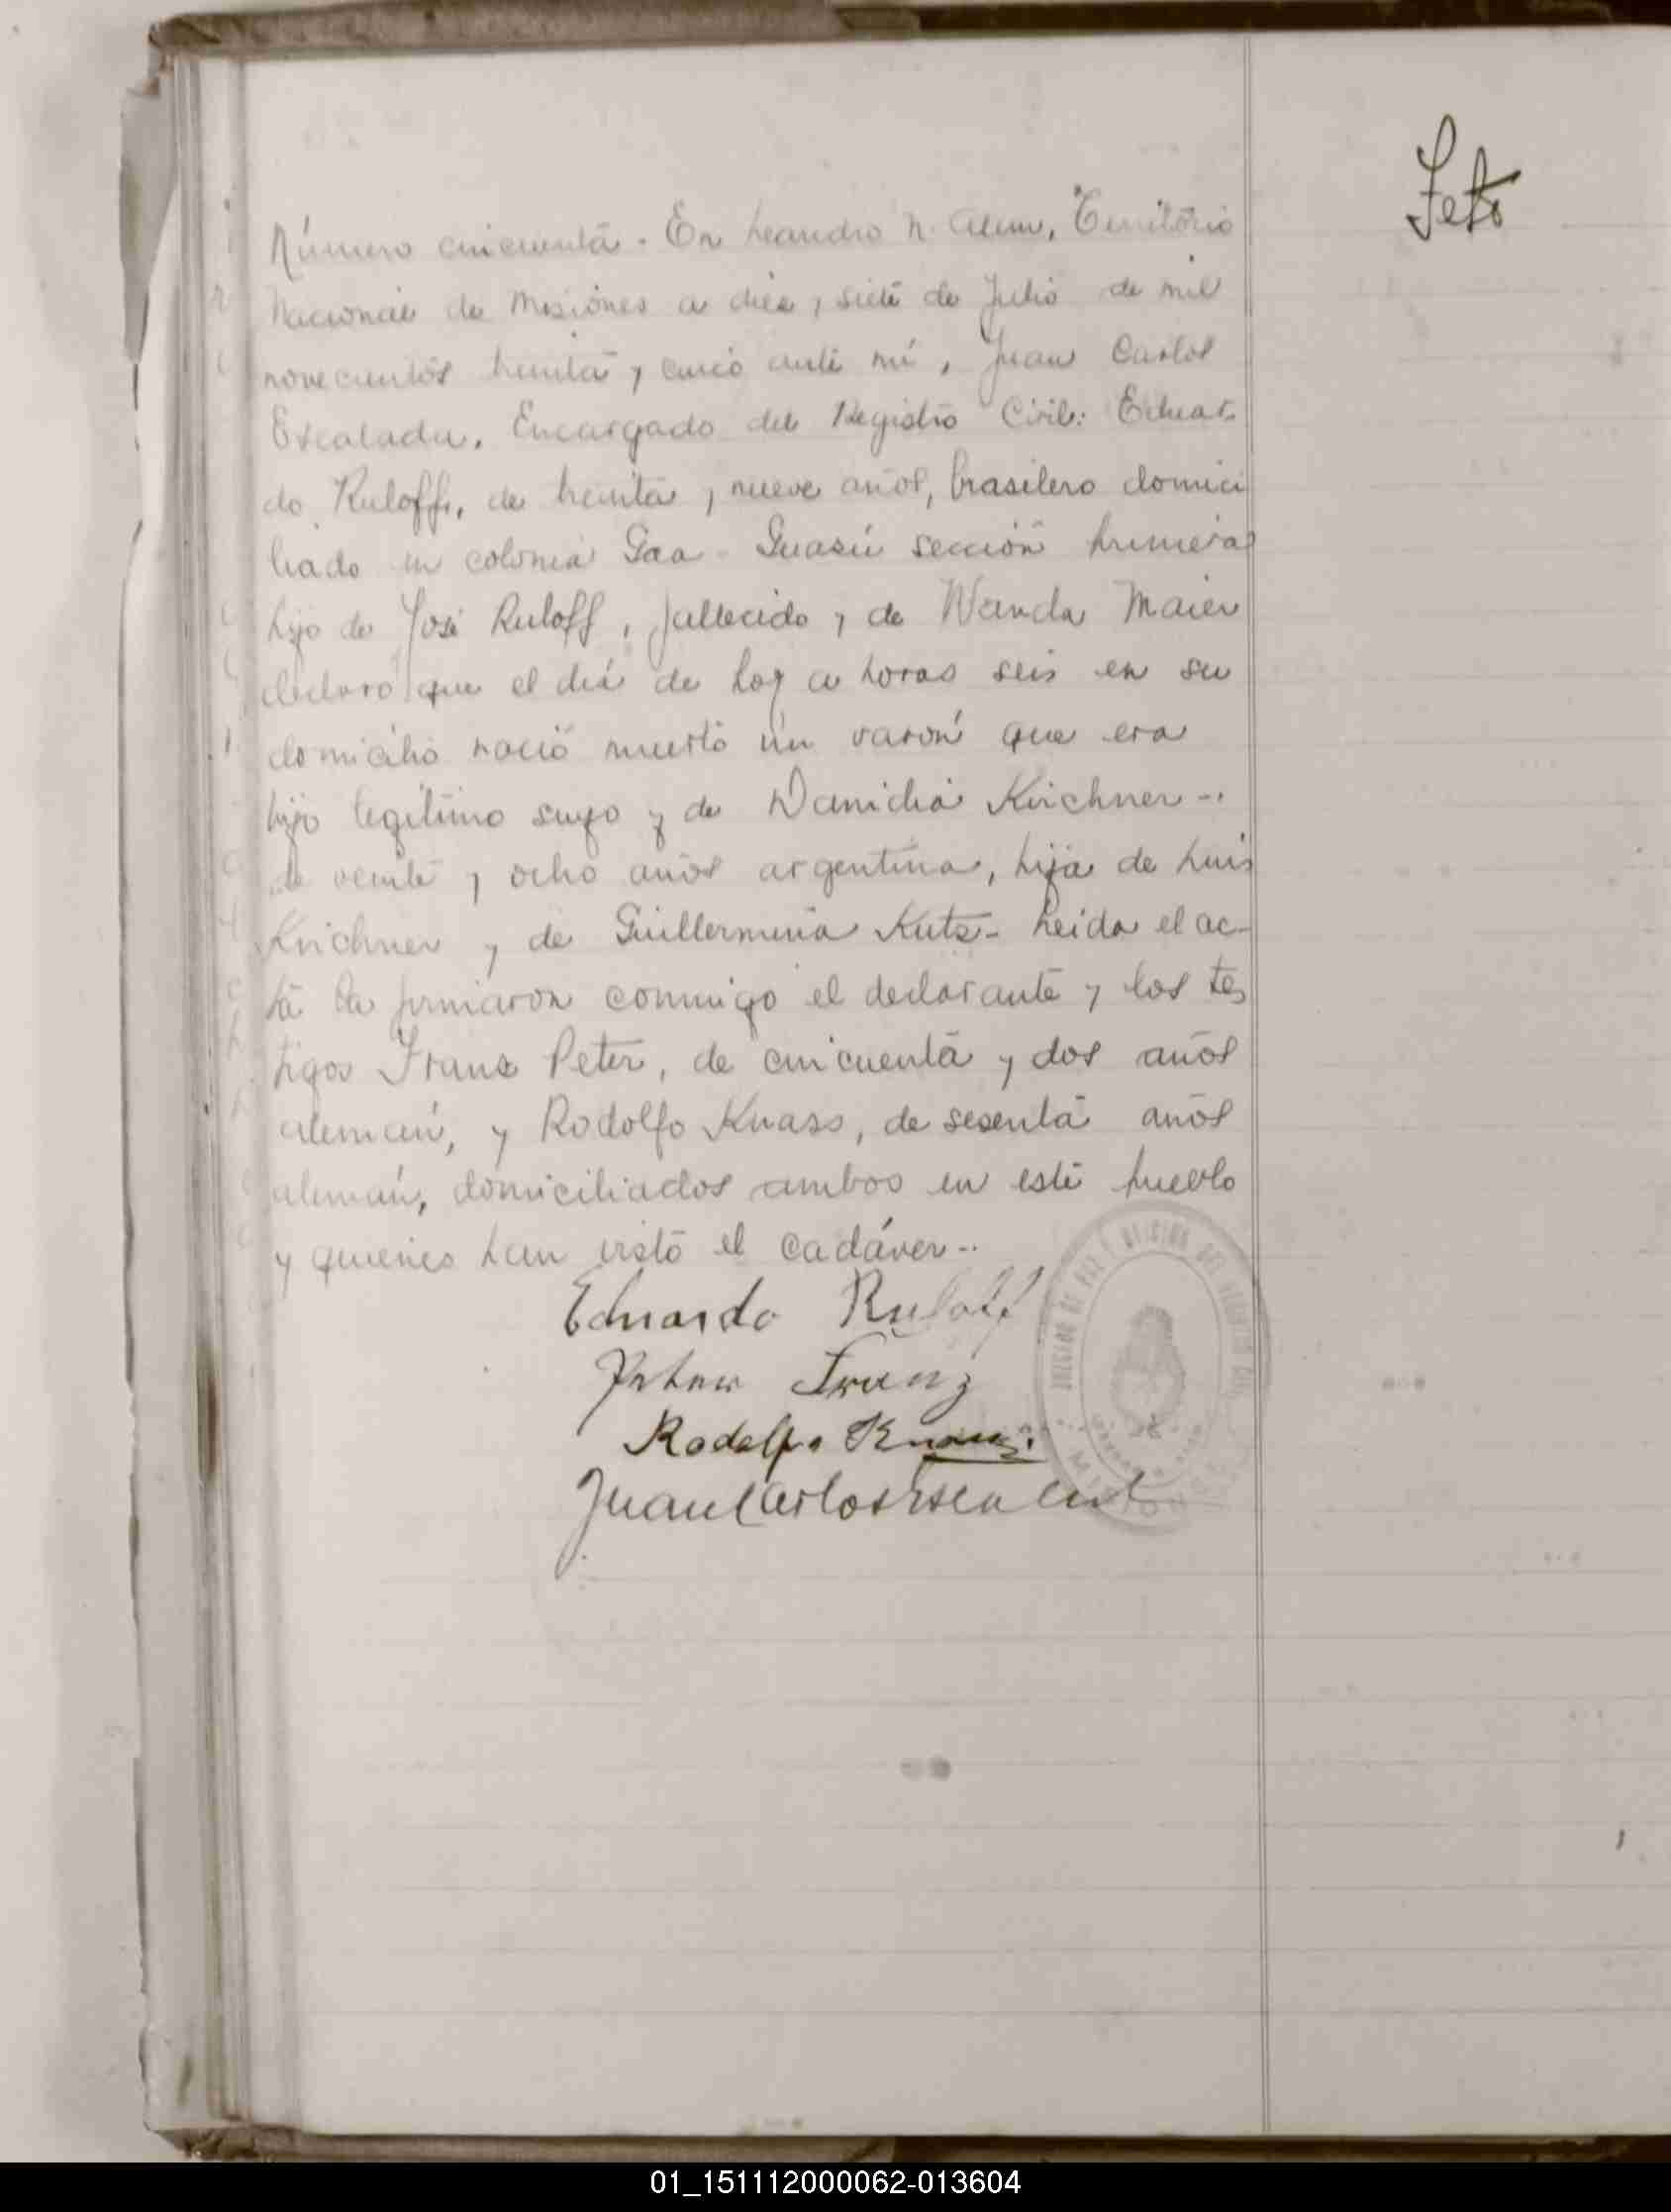 Feto
Número cincuenta. En Leandro N. Alem, Territorio
Nacional de Misiones a diez y siete de Julio de mil
novecientos treinta y cinco ante mí, Juan Carlos
Escalada, Encargado del Registro Civil: Eduar-
do Ruloff, de treinta y nueve años, brasilero domici
liado en colonia Gaa-Guasú sección primera
hijo de José Ruloff, fallecido y de Wanda Maier
declaró que el día de hoy a horas seis en su
domicilio nació muerto un varón que era
hijo legítimo suyo y de Wanidia Kirchner-.
de veinte y ocho años argentina, hija de Luis
Kirchner y de Guillermina Kutz- Leida el ac-
ta la firmaron conmigo el declarante y los tes
tigos Franz Peter, de cincuenta y dos años
alemán, y Rodolfo Knass, de sesenta años
alemán, domiciliados ambos en este pueblo
y quienes han visto el cadáver-.
Eduardo Ruloff
Peter Franz
Rodolfo
Juan Carlos Escalada
MISIONES
01_151112000062-013604